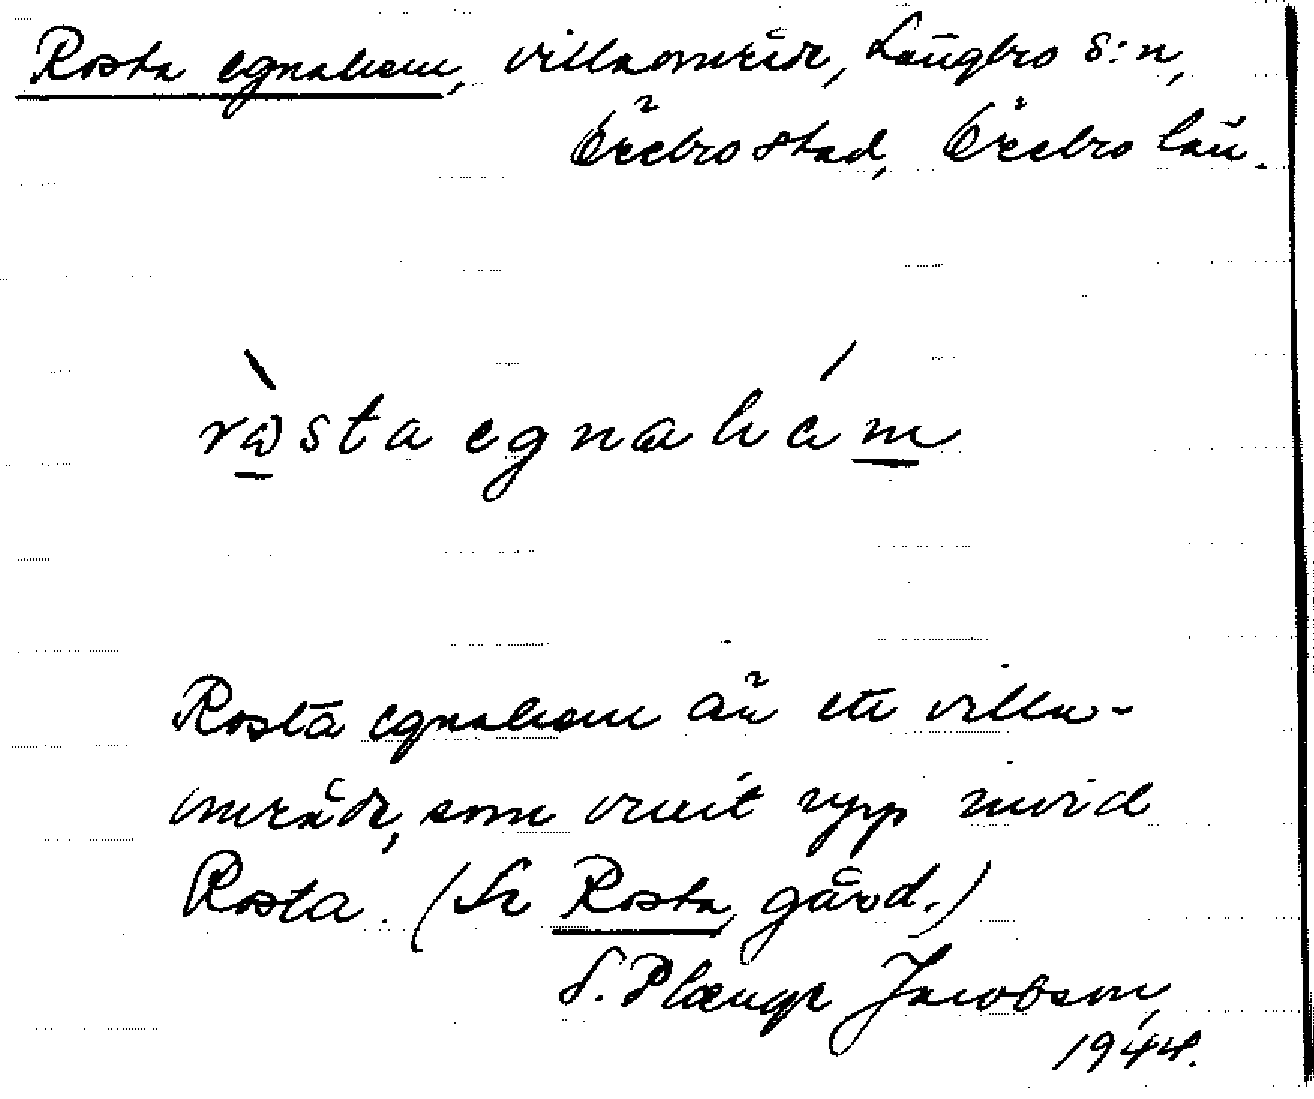 Rosta egnahem, villaområde, Längbro s:n,
Örebro stad, Örebro län.
ròsta egnahém
Rosta egnahem är ett villa-
område, som vuxit upp invid
Rosta. (Se Rosta, gård.)
S. Plænge Jacobson,
1944.